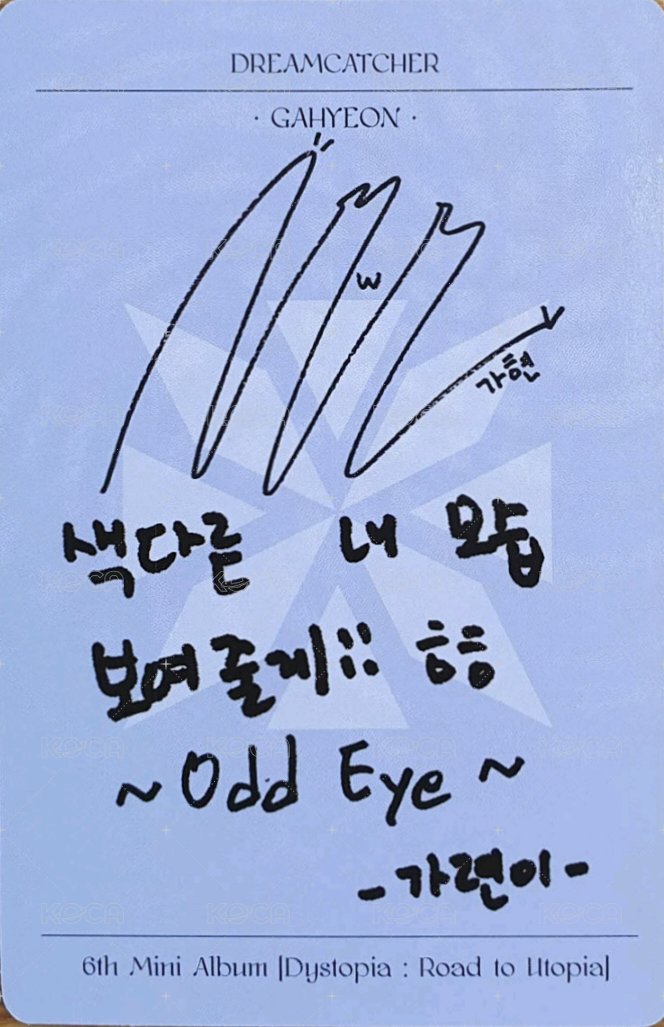 DREAMCATCHER
· GAHYEON ·
w
가현
색다른 내 모습
보여줄게!! 흐흥
~ Odd Eye ~
- 가련이 -
6th Mini Album [Dystopia : Road to Utopia]
KOCA